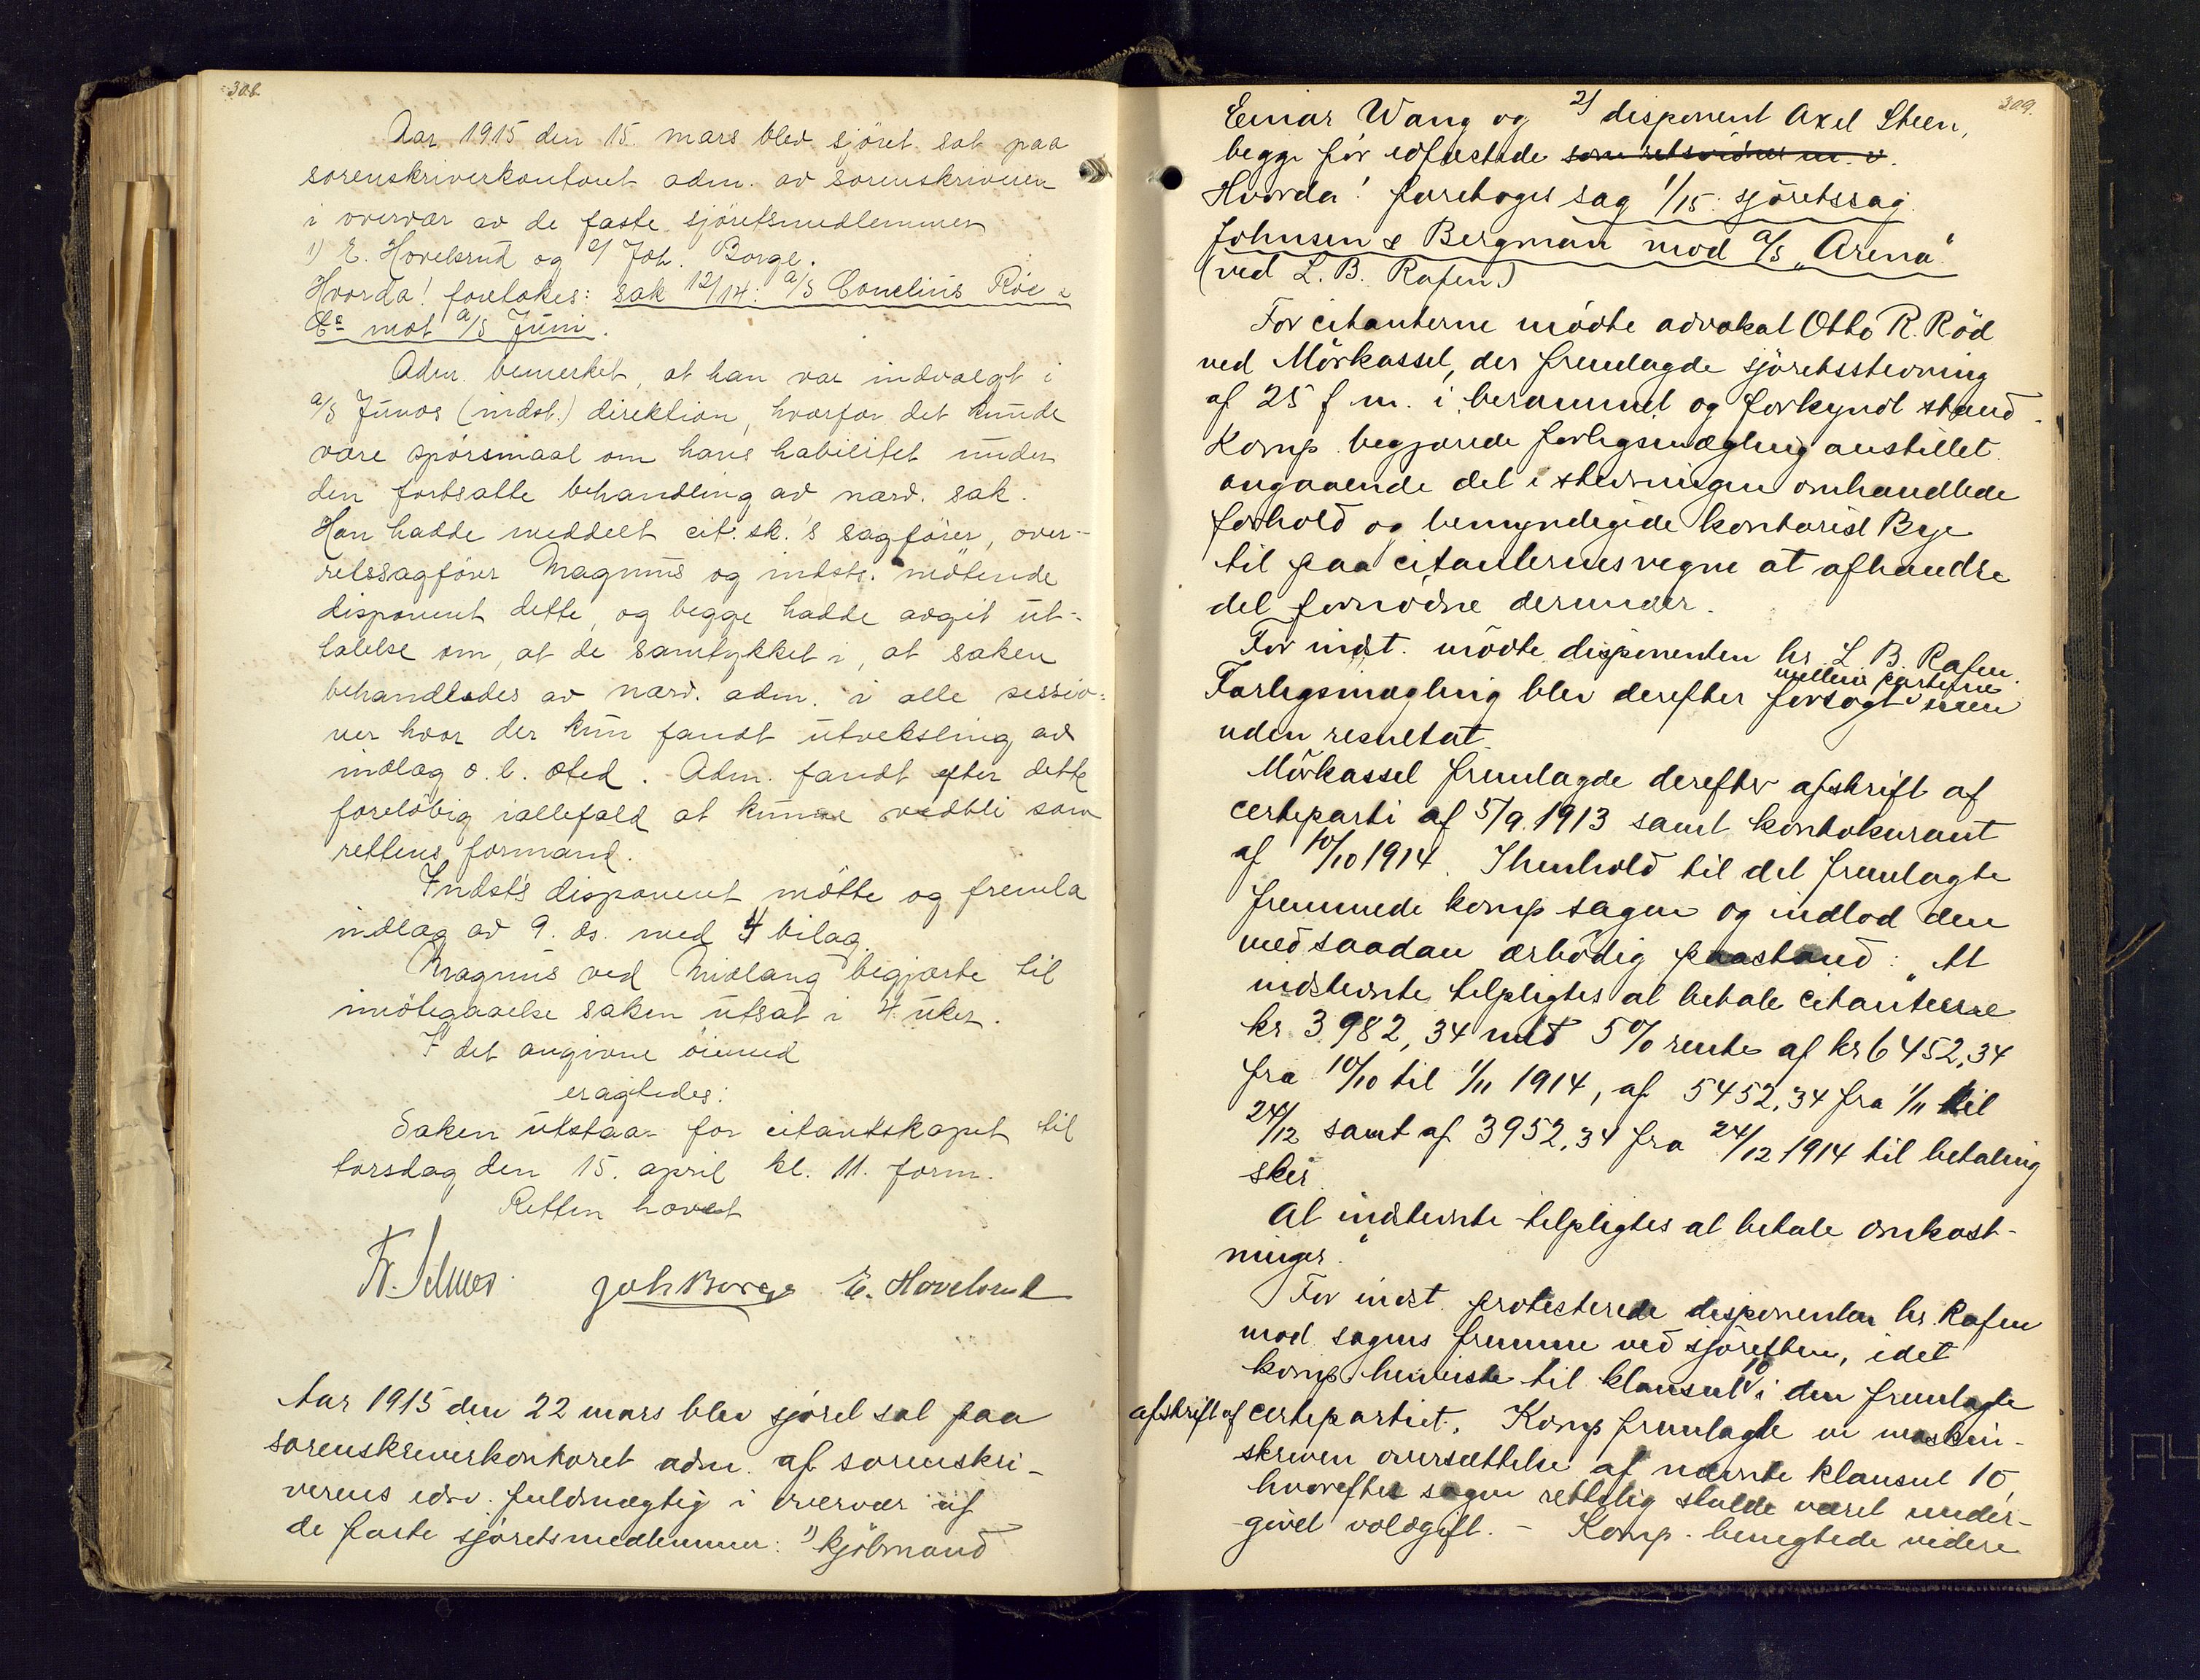 308.
Aar 1915 den 15. mars blev sjöret sat paa
sorenskriverkontoret adm. av sorenskriveren
i overvær av de faste sjöretsmedlemmer
1) E. Hovelsrud og 2/ Joh. Borge.
Hvorda! foretokes: sak 12/14: a/s Cornelius Röe &
Co mot a/s Juni.
Adm. bemerket, at han var indvalgt i
a/s Junos (indst.) direktion, hvorfor det kunde
være spörsmaal om hans habilitet under
den fortsatte behandling av nærv. sak.
Han hadde meddelt cit.sk.'s sagförer, over-
retssagförer Magnus og indst. mötende
disponent dette, og begge hadde avgit ut-
talelse om, at de samtykket i, at saken
behandledes av nærv. adm. i alle sessio-
ner hvor der kun fandt utveksling av
indlæg o. l. sted. Adm. fandt efter dette
foreløbig iallefald at kunne vedbli som
rettens formand.
Indst's disponent mötte og fremla
indlæg av 9. ds. med 4 bilag.
Magnus ved Midlang begjærte til
imötegaaelse saken utsat i 4 uker.
I det angivne öiemed
eragtedes:
Saken utstaar for citantskapet til
torsdag den 15. april kl. 11. form.
Retten hævet
Fr. Selmer Joh Borge E. Hovelsrud
Aar 1915 den 22 mars blev sjöret sat paa
sorenskriverkontoret adm. af sorenskri-
verens edsv. fuldmægtig i overvær af
de faste sjöretsmedlemmer: 1) kjöbmand
309.
Einar Wang og 2/ disponent Axel Steen,
begge för edfæstede som retsvidner m. v.
Hvorda! foretoges sag 1/15: sjöretssag
Johnsen & Bergman mod a/s "Arena"
(ved L. B. Rafen)
For citanterne mödte advokat Otto R. Röd
ved Mörkassel, der fremlagde sjöretsstevning
af 25 f. m. i berammet og forkyndt stand.
Komp. begjærede forligsmægling anstillet
angaaende det i stevningen omhandlede
forhold og bemyndigede kontorist Bye
til paa citanternes vegne at afhandle
det fornödne derunder.
For indst. mödte disponenten hr. L. B. Rafen.
mellem parterne
Forligsmægling blev derefter forsögt men
uden resultat.
Mörkassel fremlagde derefter afskrift af
certeparti af 5/9 1913 samt kontokurant
af 10/10 1914. I henhold til det fremlagte
fremmede komp sagen og indlod den
med saadan ærbödig paastand: "At
indstevnte tilpligtes at betale citanterne
kr 3 982, 34 med 5 % rente af kr 6 452, 34
fra 10/10 til 1/11 1914, af 5452, 34 fra 1/11 til
24/12 samt af 3952, 34 fra 24/12 1914 til betaling
sker.
At indstevnte tilpligtes at betale omkost-
ninger."
For indst. protesterede disponenten hr. Rafen
mod sagens fremme ved sjöretten, idet
komp henviste til klausul 10 i den fremlagte
afskrift af certepartiet. Komp fremlagde en maskin-
skreven oversættelse af nævnte klausul 10,
hvorefter sagen rettelig skulde været under-
givet voldgift. – Komp. benegtede videre